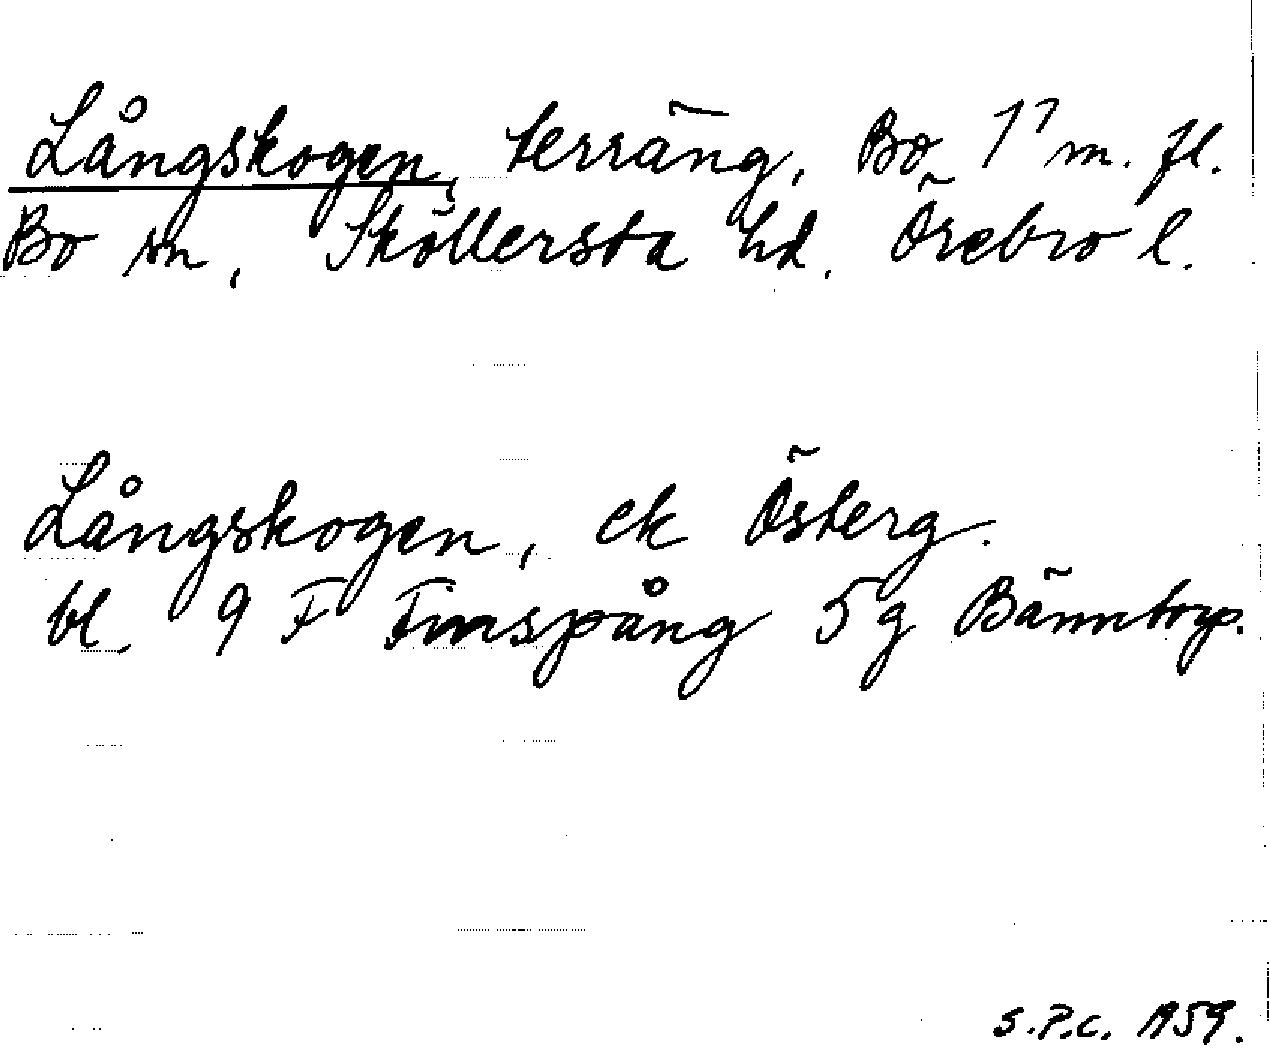 Långskogen, terräng, Bo 1⁷ m. fl.
Bo sn, Sköllersta hd. Örebro l.
Långskogen, ek Österg.
bl. 9 F Finspång 5 g Bänntorp.
S.P.C. 1959.